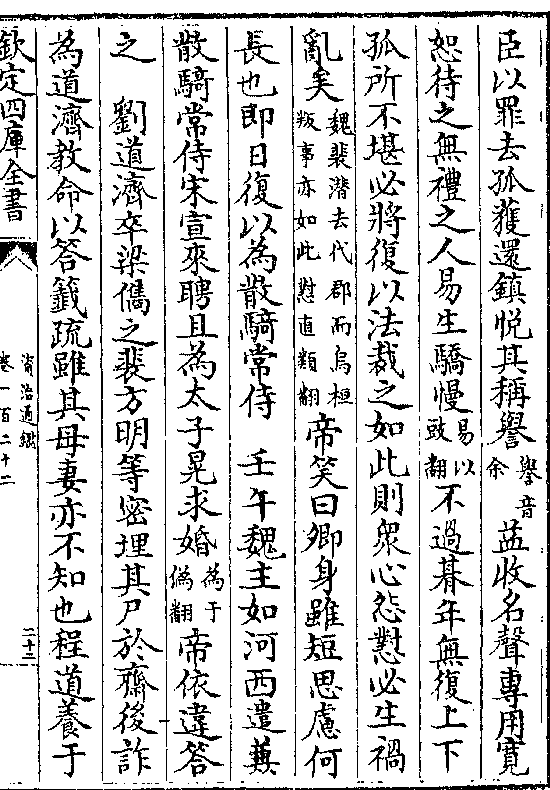 臣以罪去孤獲還鎮悦其稱譽譽音余益收名聲專用寛
恕待之無禮之人易生驕慢易以豉翻不過朞年無復上下
孤所不堪必將復以法裁之如此則衆心怨懟必生禍
亂矣魏裴潜去代郡而烏桓叛事亦如此懟直類翻帝笑曰卿身雖短思慮何
長也即日復以為散騎常侍　壬午魏主如河西遣兼
散騎常侍宋宣來聘且為太子晃求婚為于偽翻帝依違答
之　劉道濟卒梁儁之裴方明等密埋其尸於齋後詐
為道濟教命以答籤疏雖其母妻亦不知也程道養于
欽定四庫全書
資治通鑑
卷一百二十二
二十三